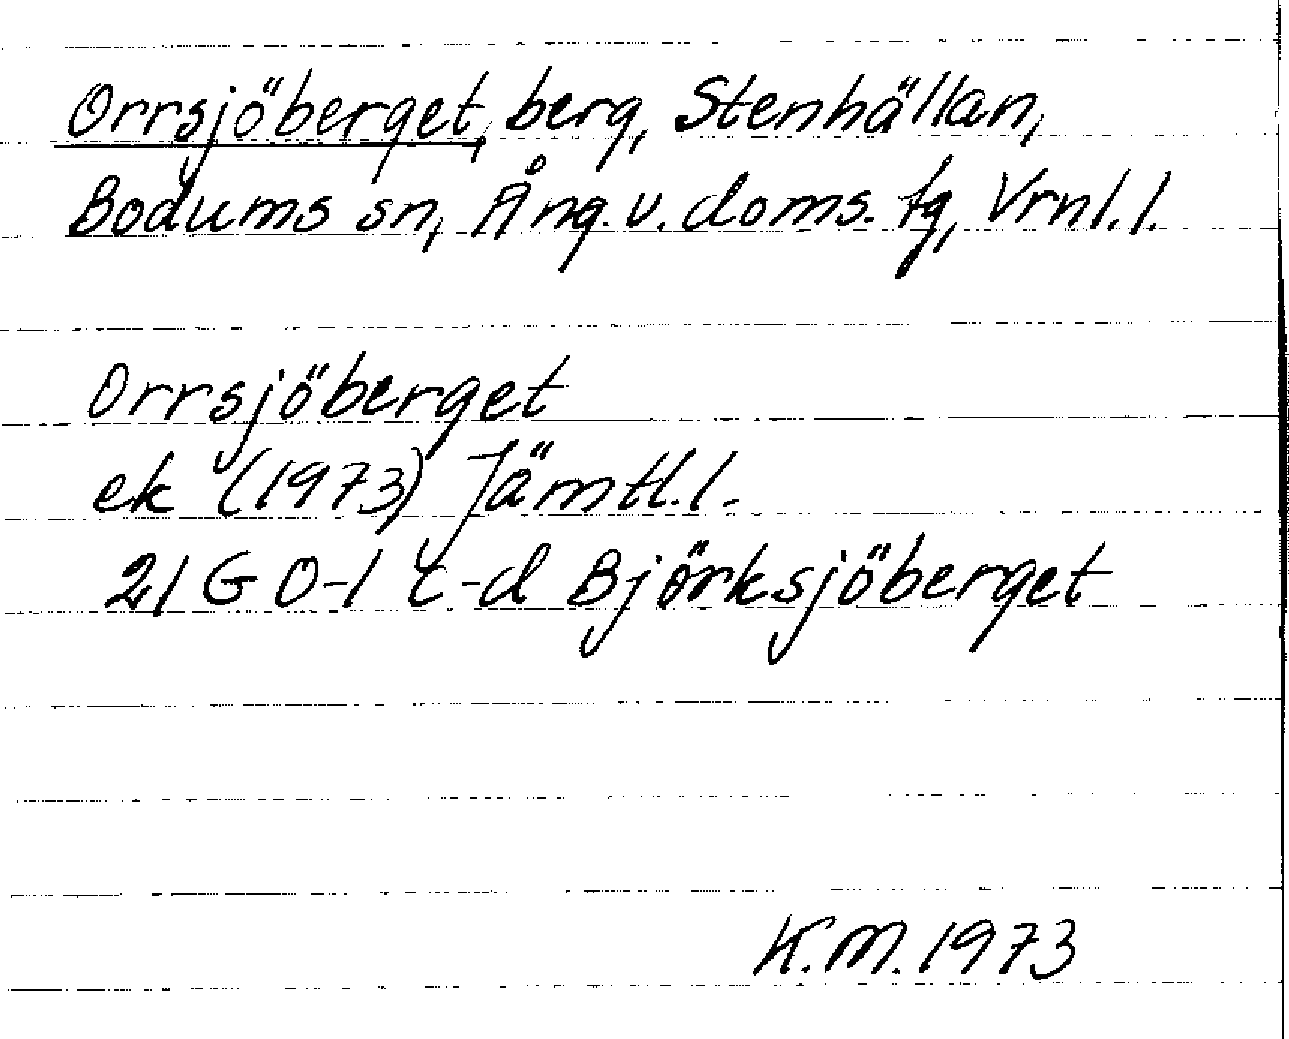 Orrsjöberget, berg, Stenhällan,
Bodums sn, Ång. v. doms. tg, Vrnl. l.
Orrsjöberget
ek (1973) Jämtl. l.
21 G 0-1 c-d Björksjöberget
K.M. 1973